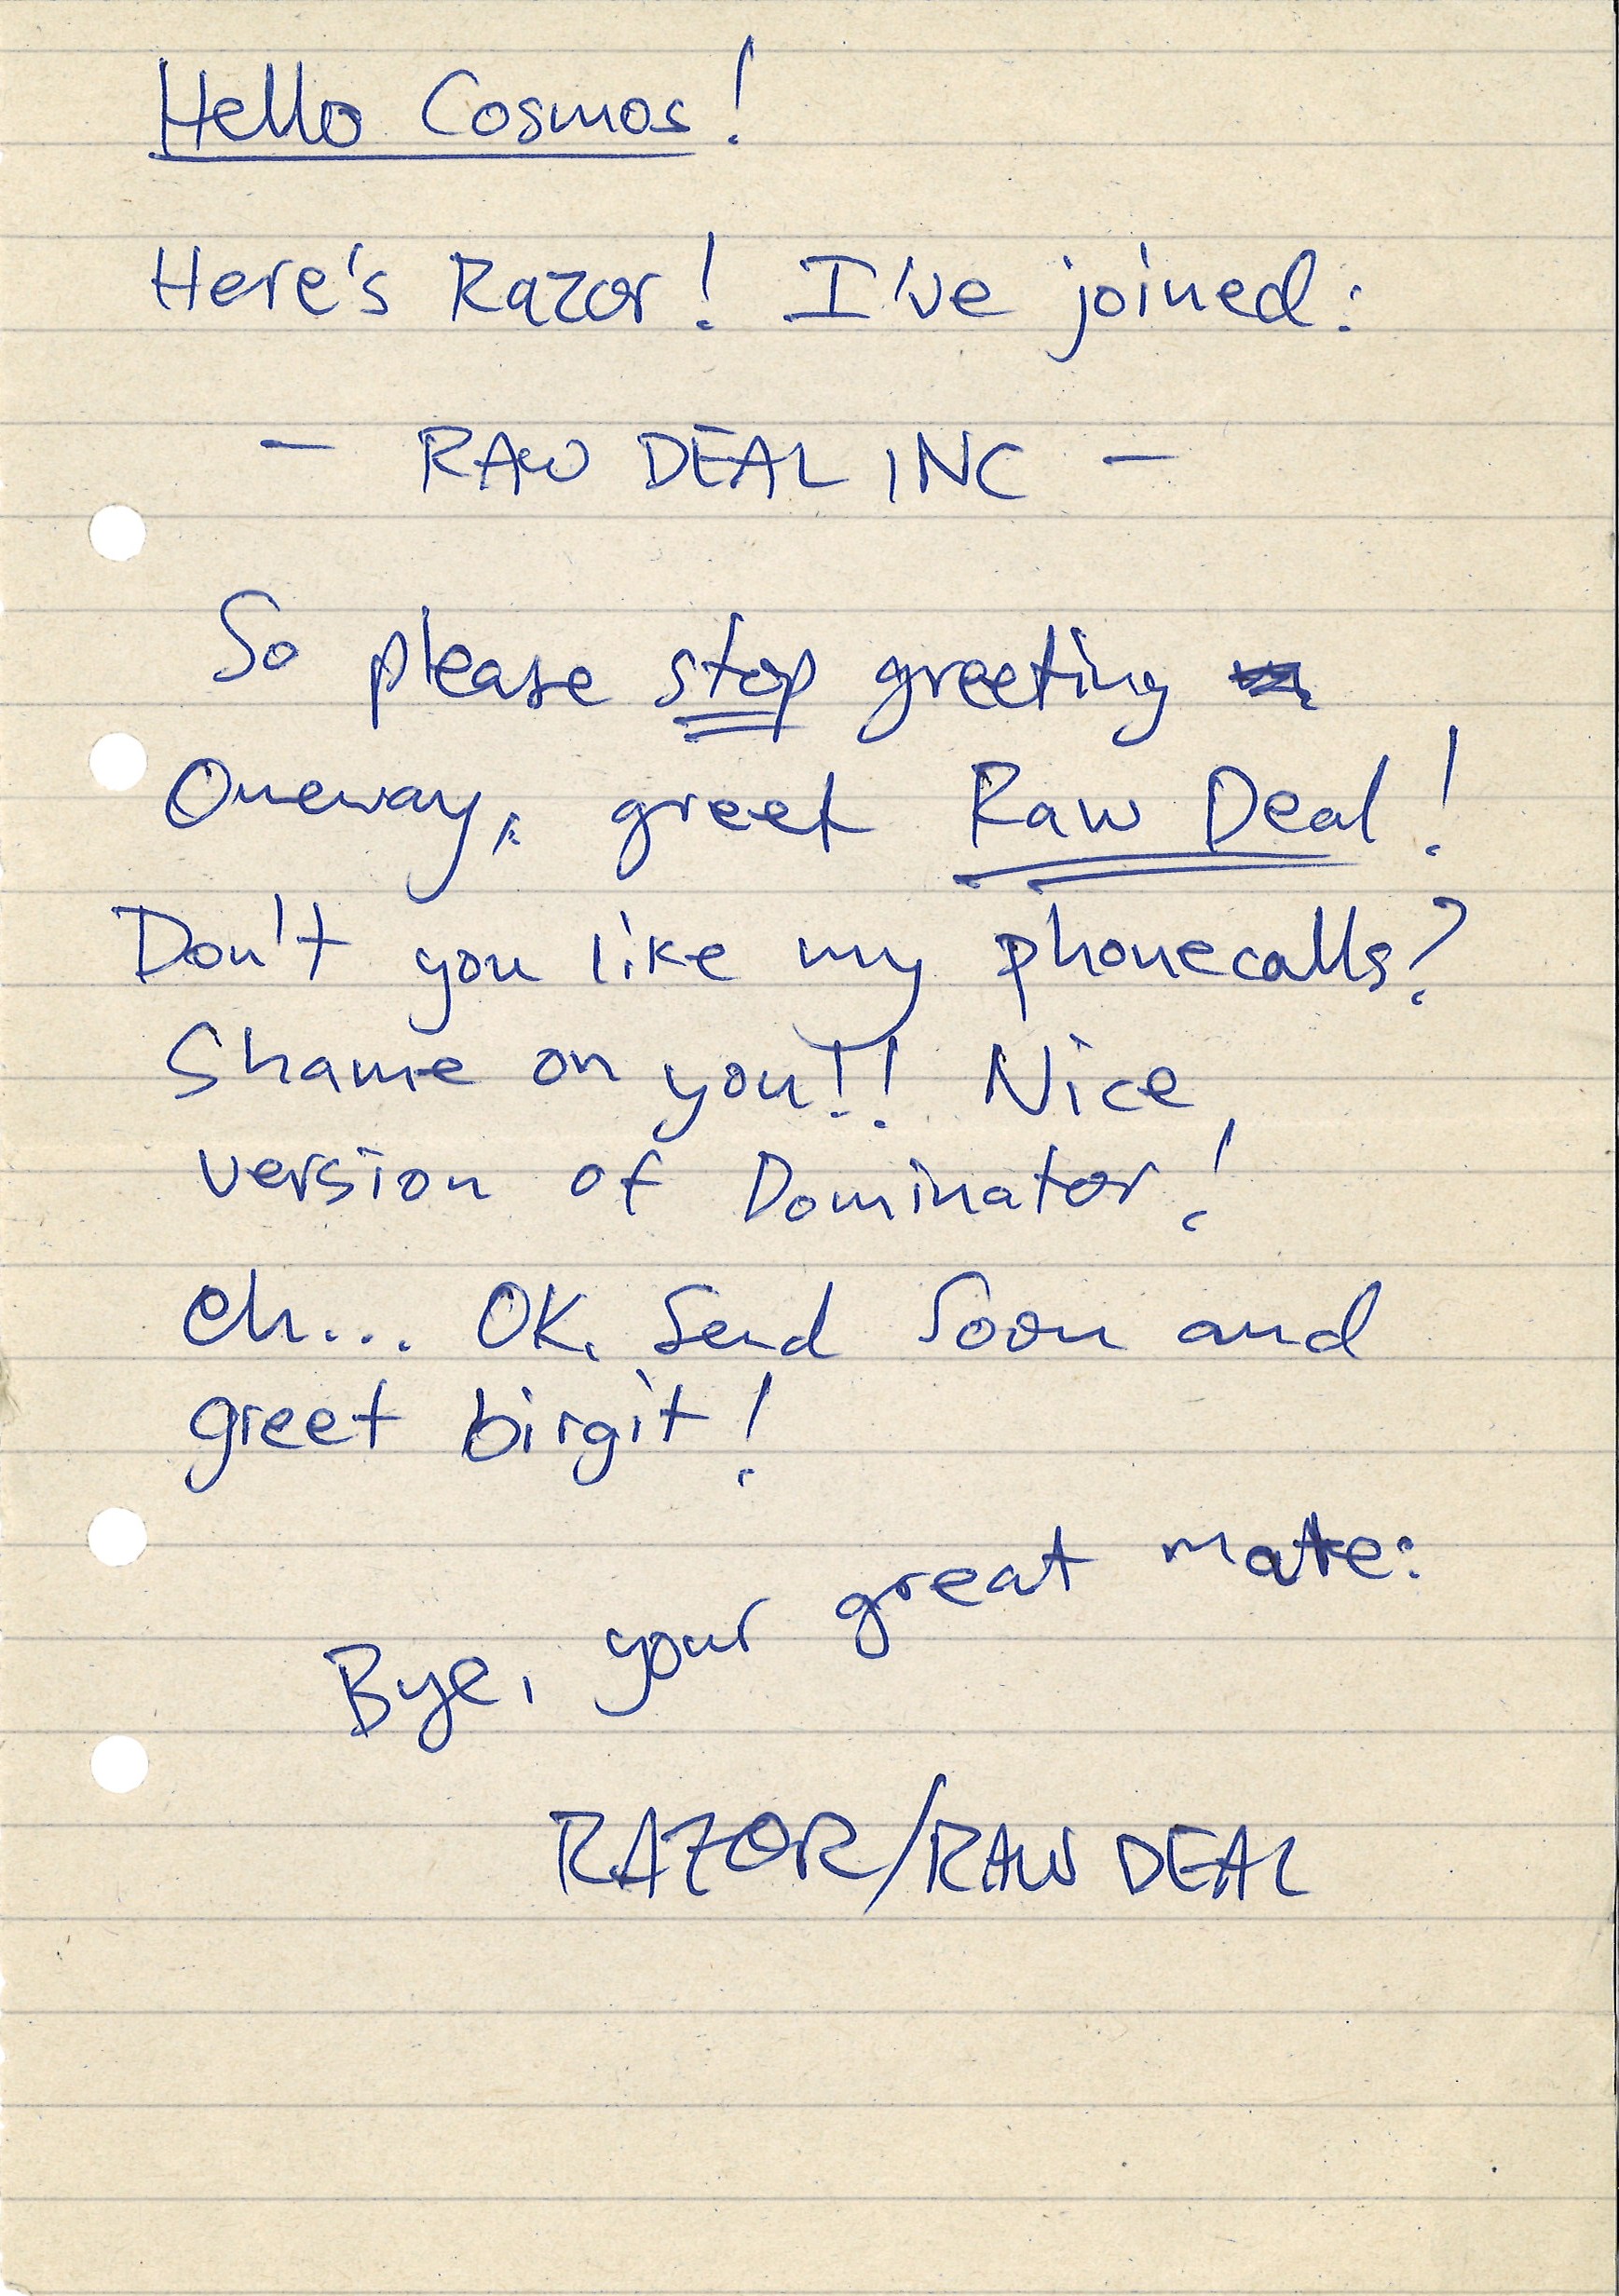 Hello Cosmos!
Here's Razor! I've joined:
- RAW DEAL INC -
So please stop greeting
Oneway, greet Raw Deal!
Don't you like my phonecalls?
Shame on you!! Nice
version of Dominator!
eh... OK. Send Soon and
greet birgit!
Bye, your great mate:
RAZOR/RAW DEAL